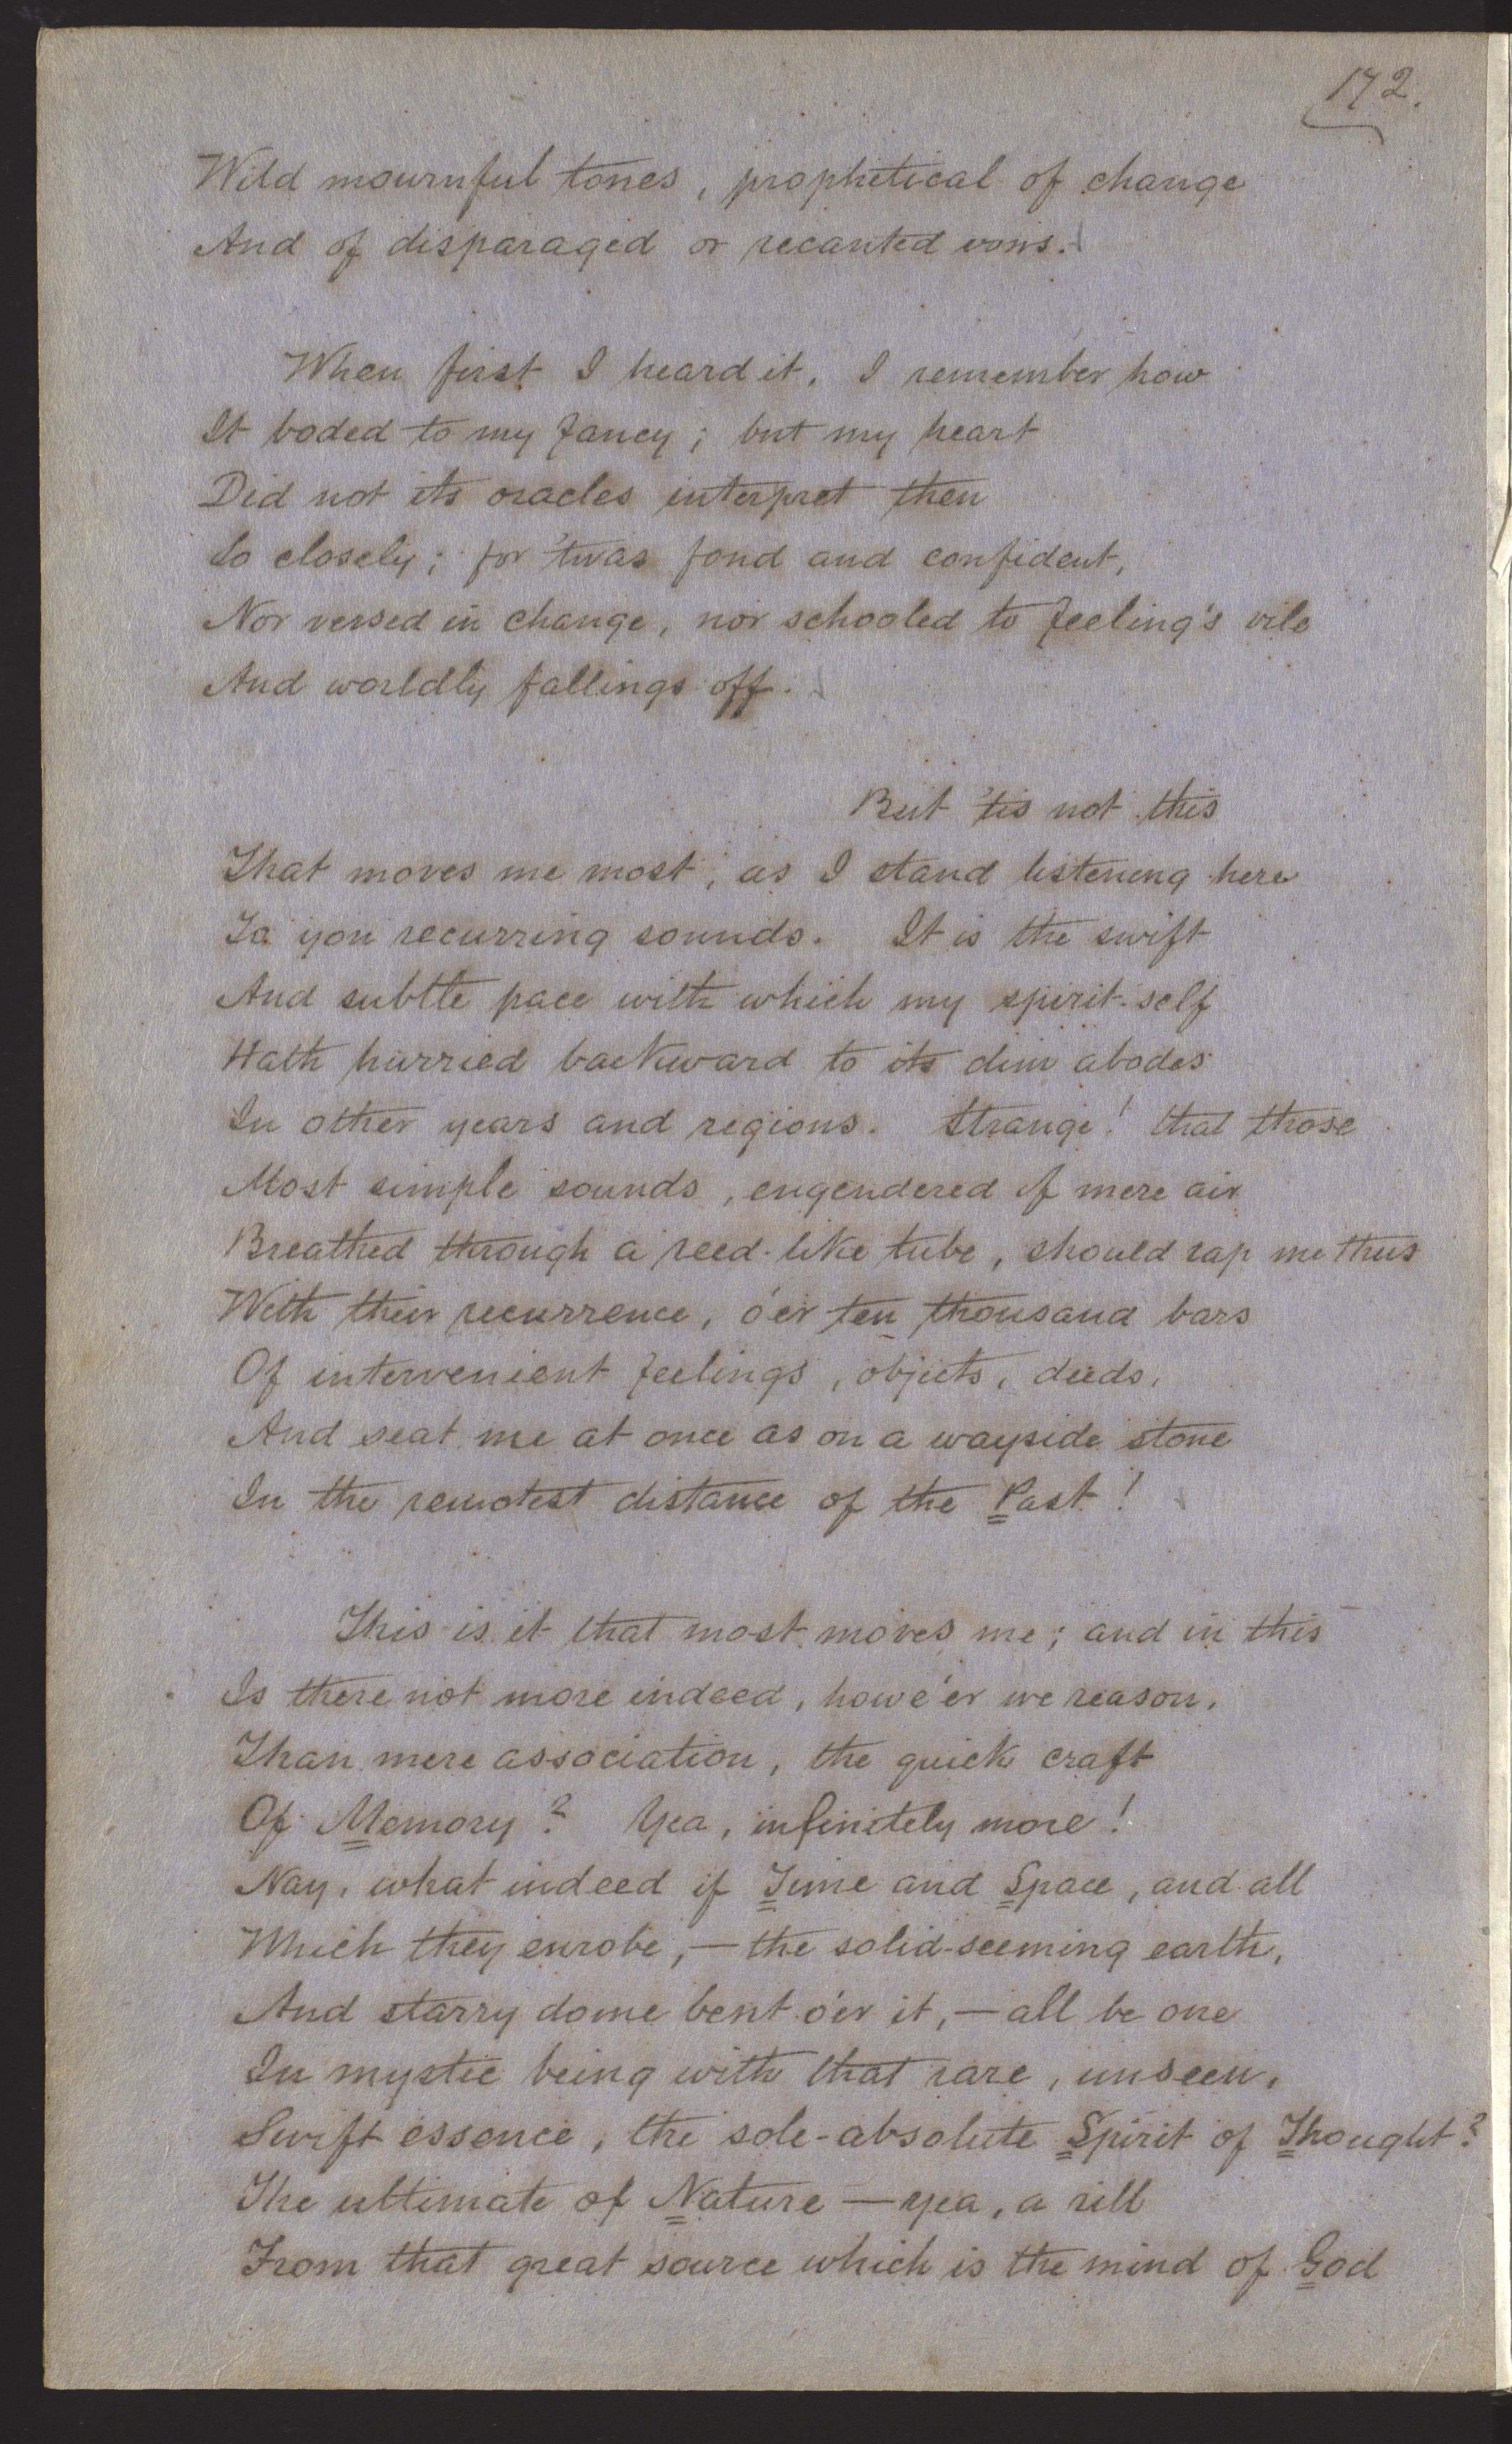 172.
Wild mournful tones, prophetical of change
And of disparaged or recanted vows.
When first I heard it, I remember how
It boded to my fancy; but my heart
Did not its oracles interpret then
So closely; for 'twas fond and confident,
Nor versed in change, nor schooled to feeling's vile
And worldly fallings off.
But 'tis not this
That moves me most, as I stand listening here
To yon recurring sounds. It is the swift
And subtle pace with which my spirit-self
Hath hurried backward to its dim abodes
In other years and regions. Strange! that those
Most simple sounds, engendered of mere air
Breathed through a reed-like tube, should rap me thus
With their recurrence, o'er ten thousand bars
Of intervenient feelings, objects, deeds,
And seat me at once as on a wayside stone
In the remotest distance of the Past!
This is it that most moves me; and in this
Is there not more indeed, howe'er we reason,
Than mere association, the quick craft
Of Memory? Yea, infinitely more!
Nay, what indeed if Time and Space, and all
Which they enrobe,—the solid-seeming earth,
And starry dome bent o'er it,—all be one
In mystic being with that rare, unseen,
Swift essence, the sole-absolute Spirit of Thought?
The ultimate of Nature—yea, a rill
From that great source which is the mind of God